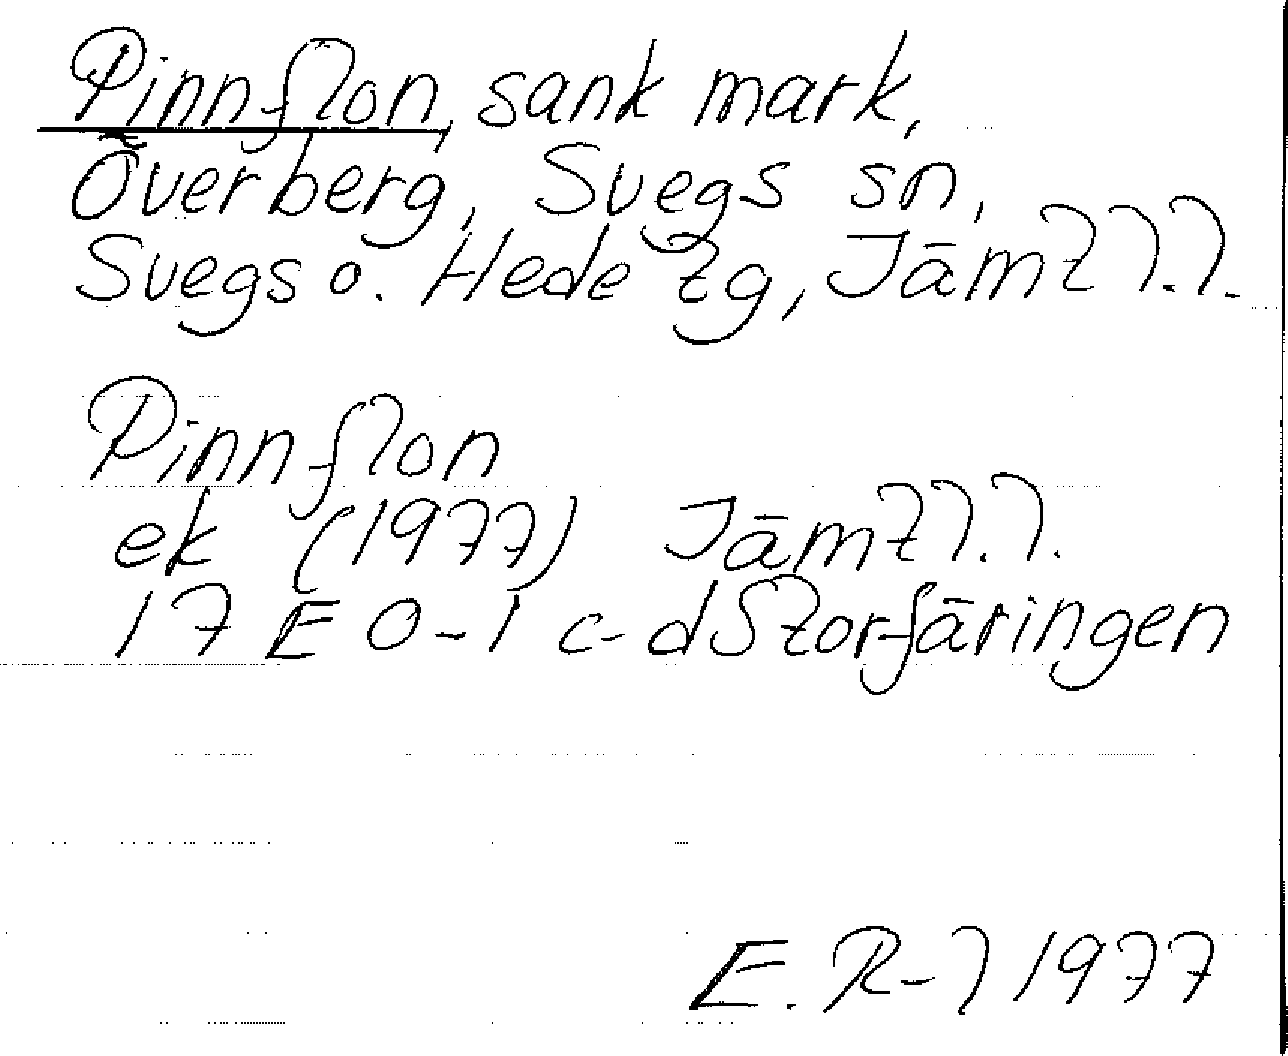 Pinnflon, sank mark,
Överberg, Svegs sn,
Svegs o. Hede tg, Jämtl.l.
Pinnflon
ek (1977) Jämtl.l.
17 E 0-1 c-d Storfäringen
E. R-l 1977